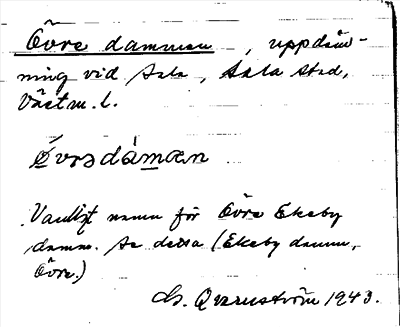 Övre dammen, uppdäm-
ning vid Sala, Sala stad,
Västm. l.
Øvrədámæn
Vanligt namn för Övre Ekeby
damm. Se detta (Ekeby damm,
Övre.)
G. Qvarnström 1943.